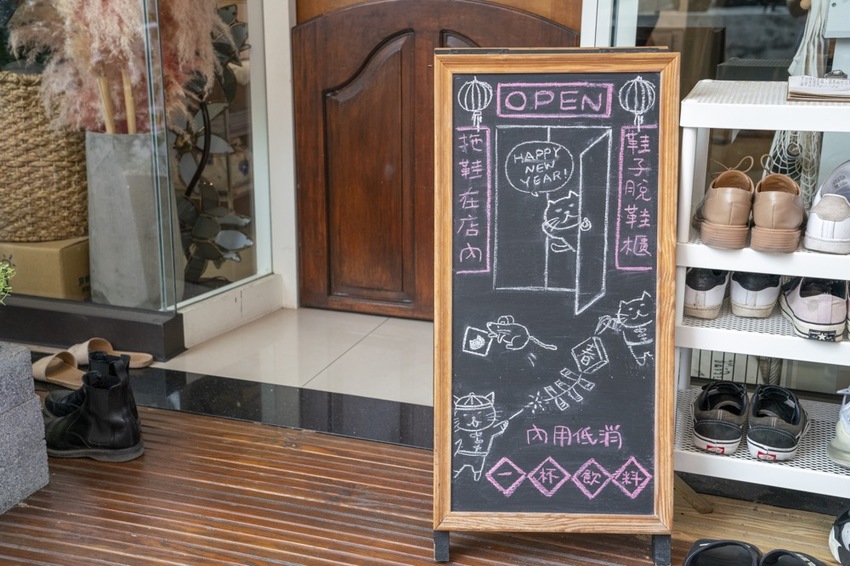 OPEN
拖鞋在店內
HAPPY
NEW
YEAR!
鞋子脫鞋櫃
春
內用低消
一杯飲料